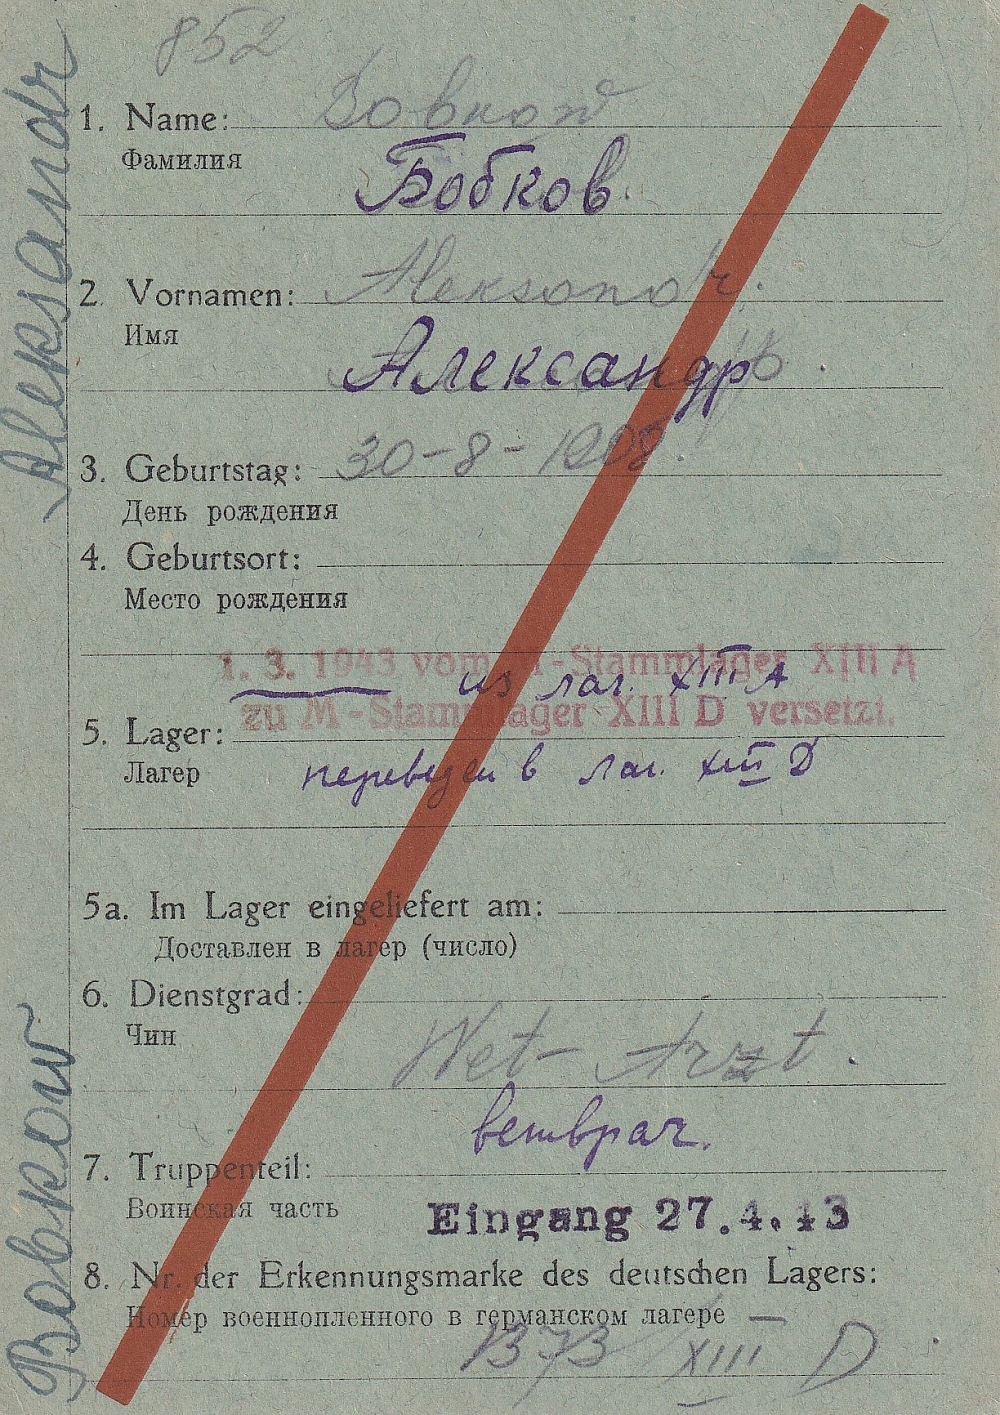 852
1. Name: Bobkow
Фамилия
Бобков.
2. Vornamen: Aleksandr.
Имя
Александр
3. Geburtstag: 30-8-1908.
День рождения
4. Geburtsort:
Место рождения
1. 3. 1943 vom M-Stammlager XIII A
из лаг. XIII A
zu M-Stammlager XIII D versetzt.
5. Lager:
Лагер
переведен в лаг. XIII D
5a. Im Lager eingeliefert am:
Доставлен в лагер (число)
6. Dienstgrad:
Чин
Wet-Arzt.
ветврач.
7. Truppenteil:
Воинская часть
Eingang 27.4.43
8. Nr. der Erkennungsmarke des deutschen Lagers:
Номер военнопленного в германском лагере
XIII D
Bobkow Aleksandr